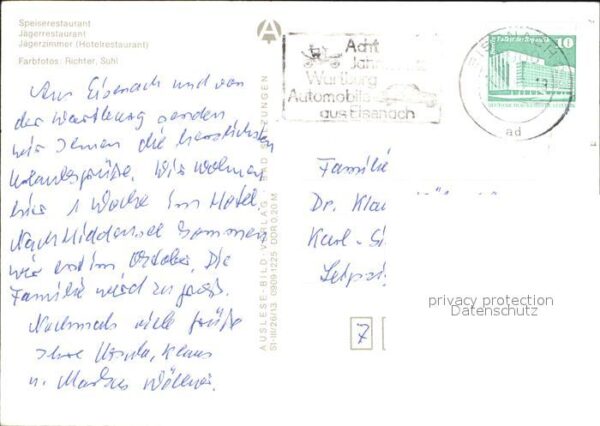 Speiserestaurant
Jägerrestaurant
Jägerzimmer (Hotelrestaurant)
Farbfotos: Richter, Suhl
Aus Eisenach und von
der Wartburg senden
wir Ihnen die herzlichsten
Urlaubsgrüße. Wir wohnen
hier 1 Woche im Hotel.
Nach Hiddensee kommen
wir erst im Oktober. Die
Familie wird zu groß.
Nochmals viele Grüße
Ihre Ursula, Klaus
u. Markus
AUSLESE-BILD-VERLAG · BAD SALZUNGEN
St-III/26/13 0909 1225 DDR 0,20 M
A
Acht
Wartburg
Automobile
aus Eisenach
EISENACH
ad
10
Familie
Dr. Kla
Karl-
Leipzi
7
privacy protection
Datenschutz